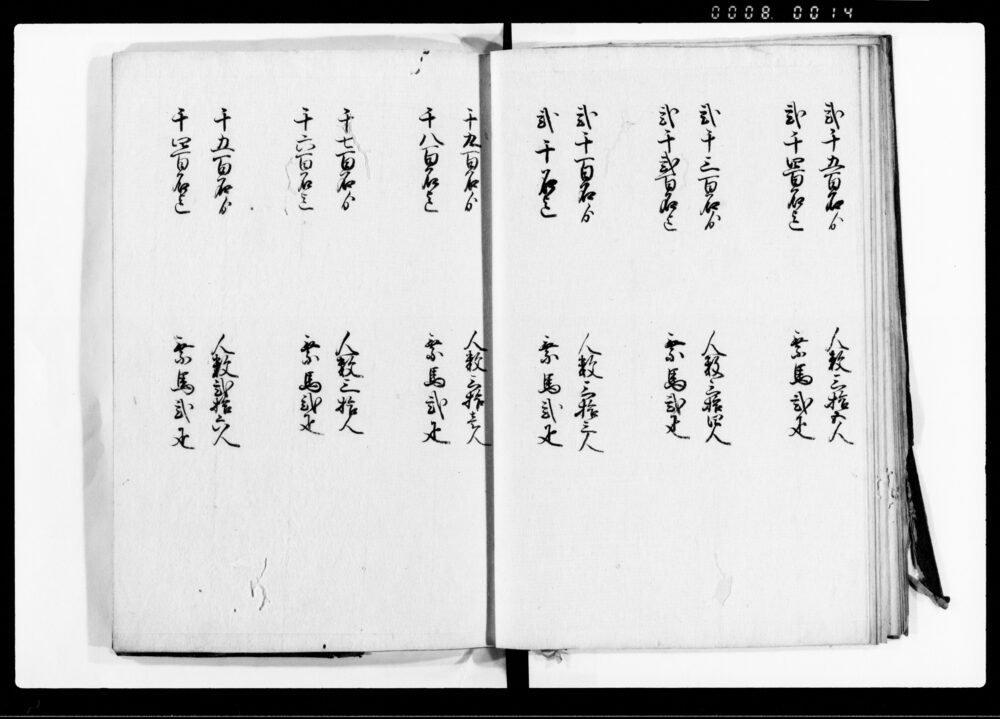 0008 0014
弐千五百石ゟ
弐千四百石迄
人数三拾五人
乗馬弐疋
弐千三百石ゟ
弐千弐百石迄
人数三拾四人
乗馬弐疋
弐千百石ゟ
弐千石迄
人数三拾三人
乗馬弐疋
千九百石ゟ
千八百石迄
人数三拾壱人
乗馬弐疋
千七百石ゟ
千六百石迄
人数三拾人
乗馬弐疋
千五百石ゟ
千四百石迄
人数弐拾六人
乗馬弐疋